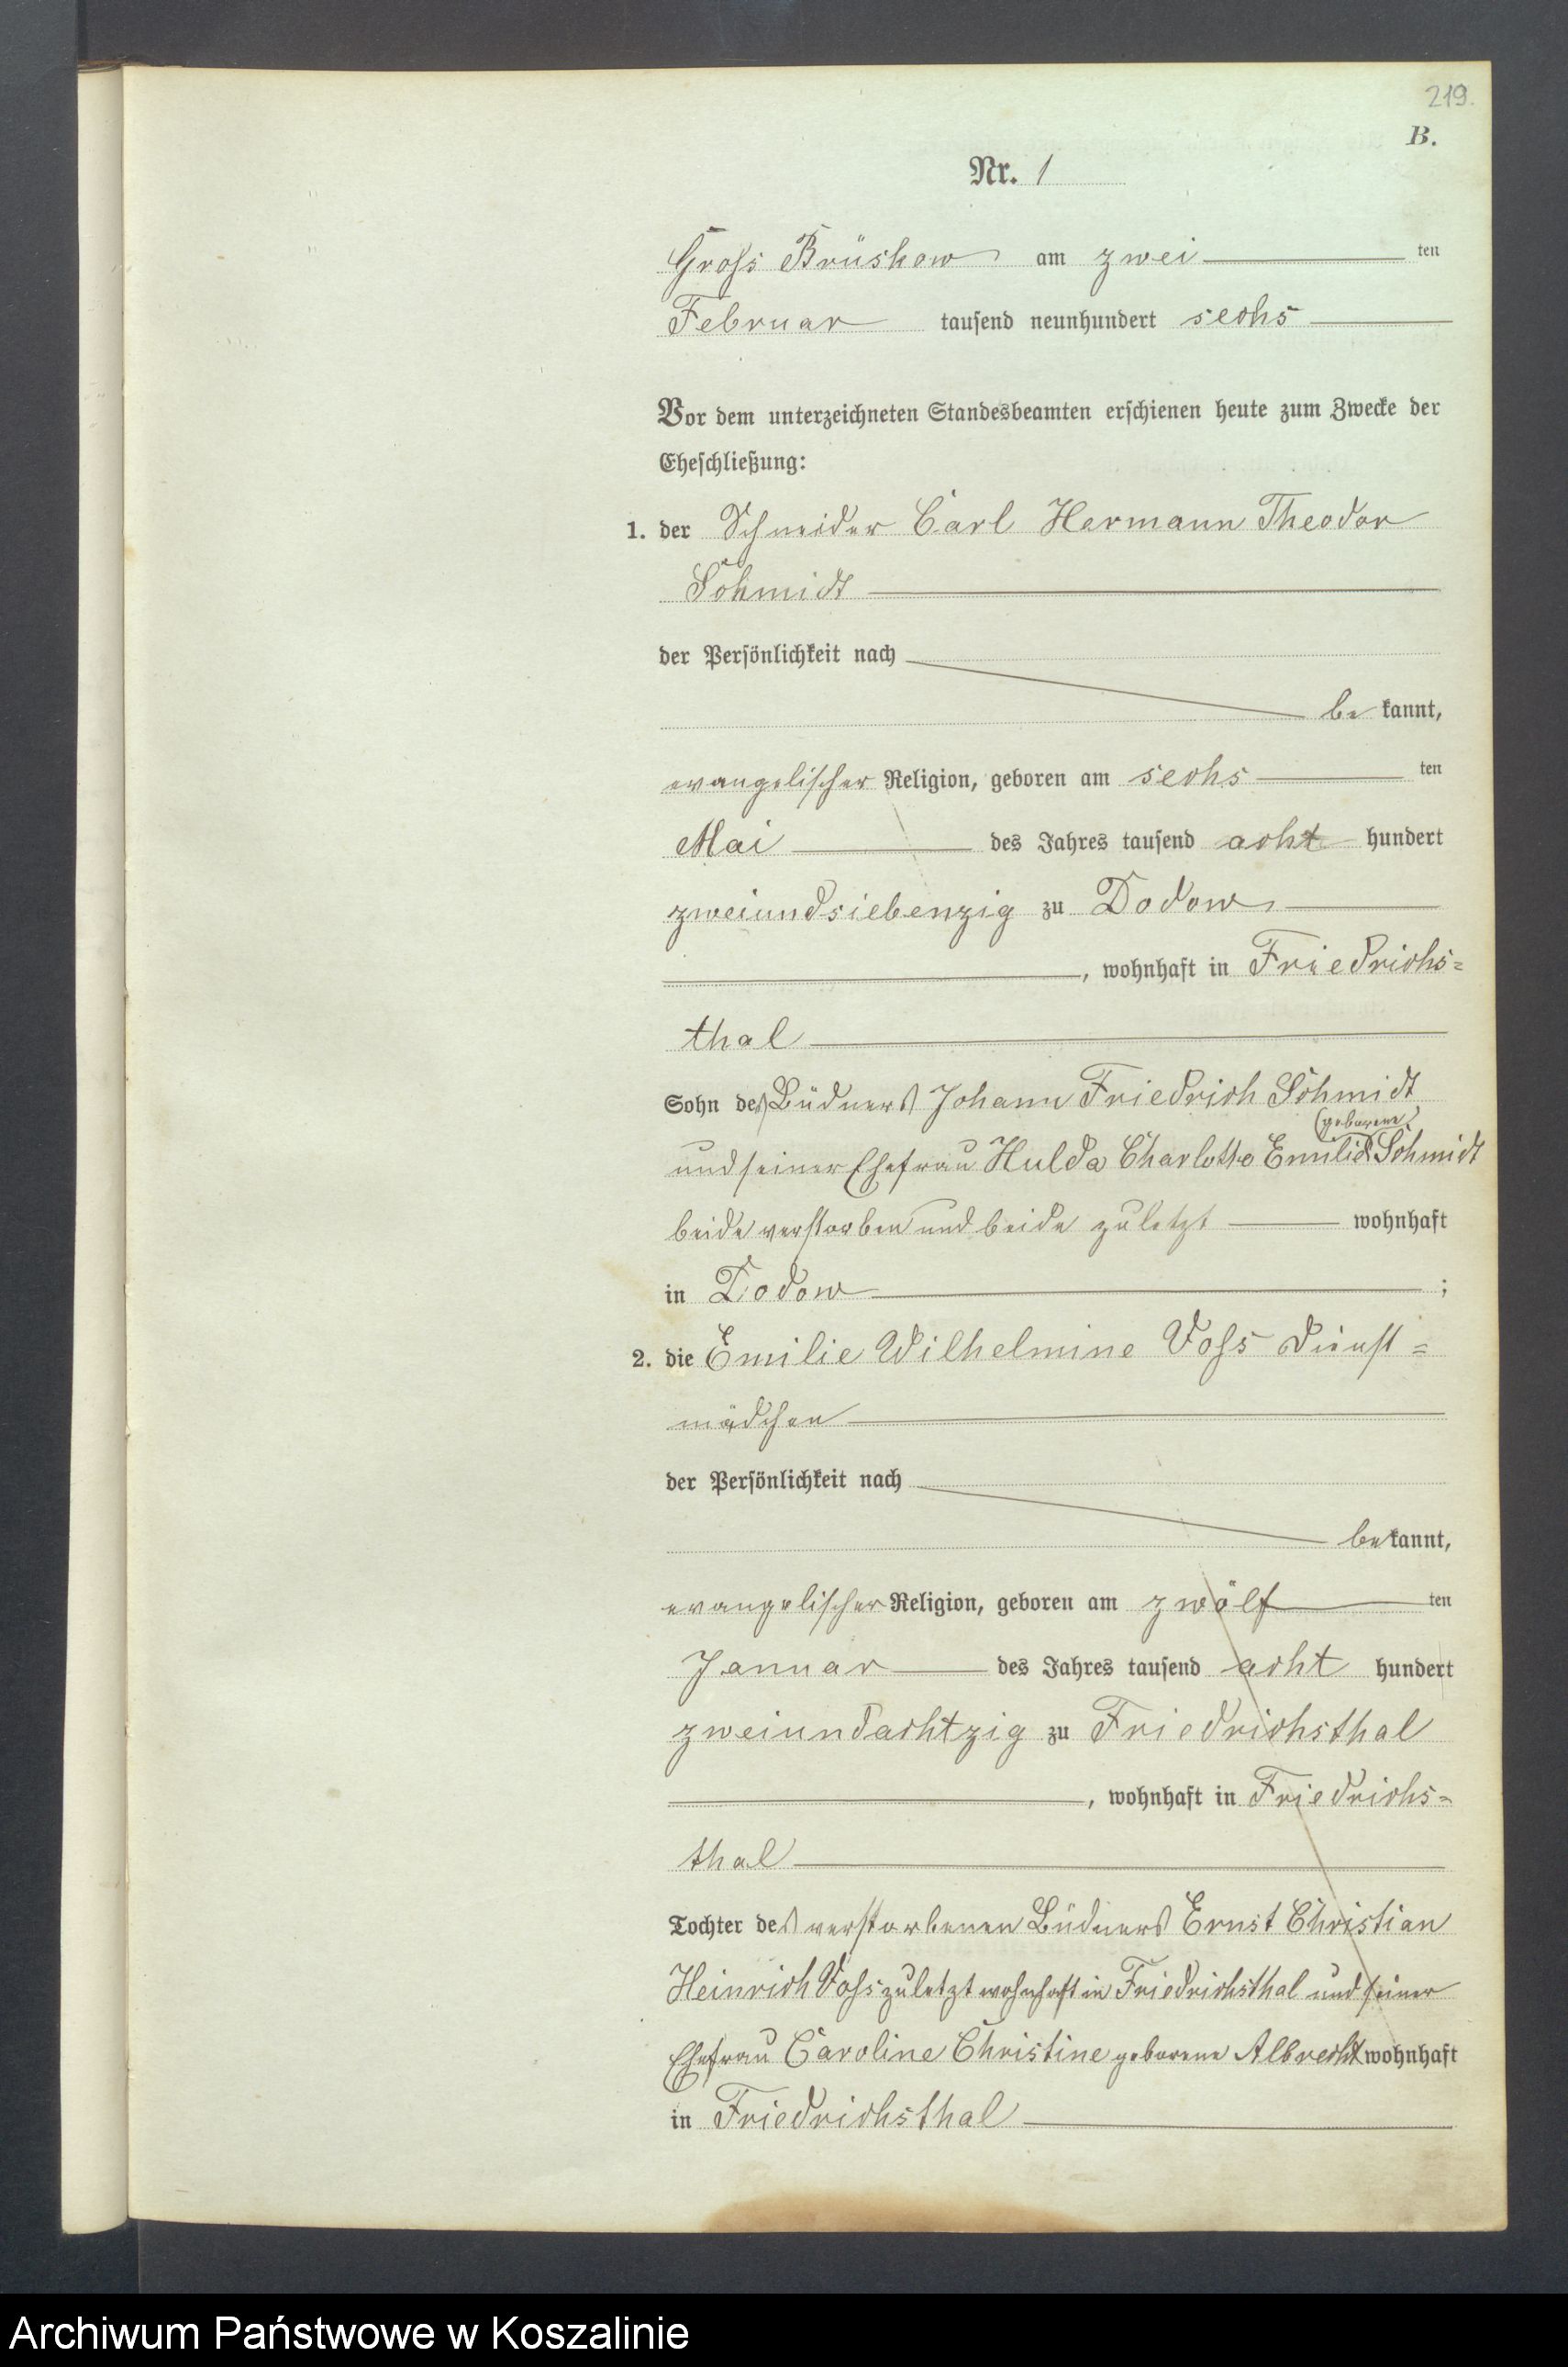 219.
B.
Nr. 1
Gross Brüskow am zwei ten
Februar tausend neunhundert sechs
Vor dem unterzeichneten Standesbeamten erschienen heute zum Zwecke der
Eheschließung:
1. der Schneider Carl Hermann Theodor
Schmidt
der Persönlichkeit nach
be kannt,
evangelischer Religion, geboren am sechs ten
Mai des Jahres tausend acht hundert
zweiundsiebenzig zu Dodow
, wohnhaft in Friedrichs=
thal
Sohn des Büdners Johann Friedrich Schmidt
(geborene)
und seiner Ehefrau Hulda Charlotte Emilie Schmidt
beide verstorben und beide zuletzt wohnhaft
in Dodow ;
2. die Emilie Wilhelmine Voss Dienst=
mädchen
der Persönlichkeit nach
bekannt,
evangelischer Religion, geboren am zwölf ten
Januar des Jahres tausend acht hundert
zweiundachtzig zu Friedrichsthal
, wohnhaft in Friedrichs=
thal
Tochter des verstorbenen Büdners Ernst Christian
Heinrich Voss zuletzt wohnhaft in Friedrichsthal und seiner
Ehefrau Caroline Christine geborene Albrecht wohnhaft
in Friedrichsthal
Archiwum Państwowe w Koszalinie